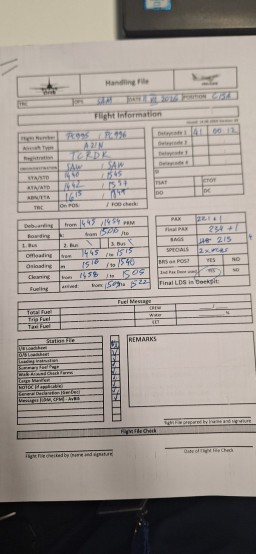 Handling File
OPS SAW DATE POSITION
Flight Information
Flight Number PC995 / PC996
Aircraft Type A21N
Registration TCRDK
SAW / SAW
STA/STD 1440 / 1545
ATA/ATD 1442 / 1537
ABN/ETA 1615 / 1749
TRC On POS: / FOD check:
Delaycode 1 41 00 12
Delaycode 2
Delaycode 3
Delaycode 4
SI
TSAT CTOT
DO DC
Deboarding from 1445 / 1454 PRM
Boarding from 1500 / to
1. Bus 2. Bus 3. Bus
Offloading from 1445 / to 1515
Onloading 1516 / to 1540
Cleaning from 1458 / to 1505
Fueling arrived: from 1509 to 1522
PAX 221 + 1
Final PAX 234 + 1
BAGS 215
SPECIALS
BRS on POS? YES NO
2nd Pax Door used YES NO
Final LDS in Cockpit:
Fuel Message
Total Fuel CREW /
Trip Fuel Water %
Taxi Fuel LET
Station File
I/B Loadsheet
O/B Loadsheet
Loading Instruction
Summary Fuel Page
Walk-Around Check Forms
Cargo Manifest
NOTOC (if applicable)
General Declaration (GenDec)
Messages (LDM, CPM) - AvBIS
REMARKS
flight File prepared by (name and signature)
Flight File Check
Flight File checked by (name and signature)
Date of Flight File Check